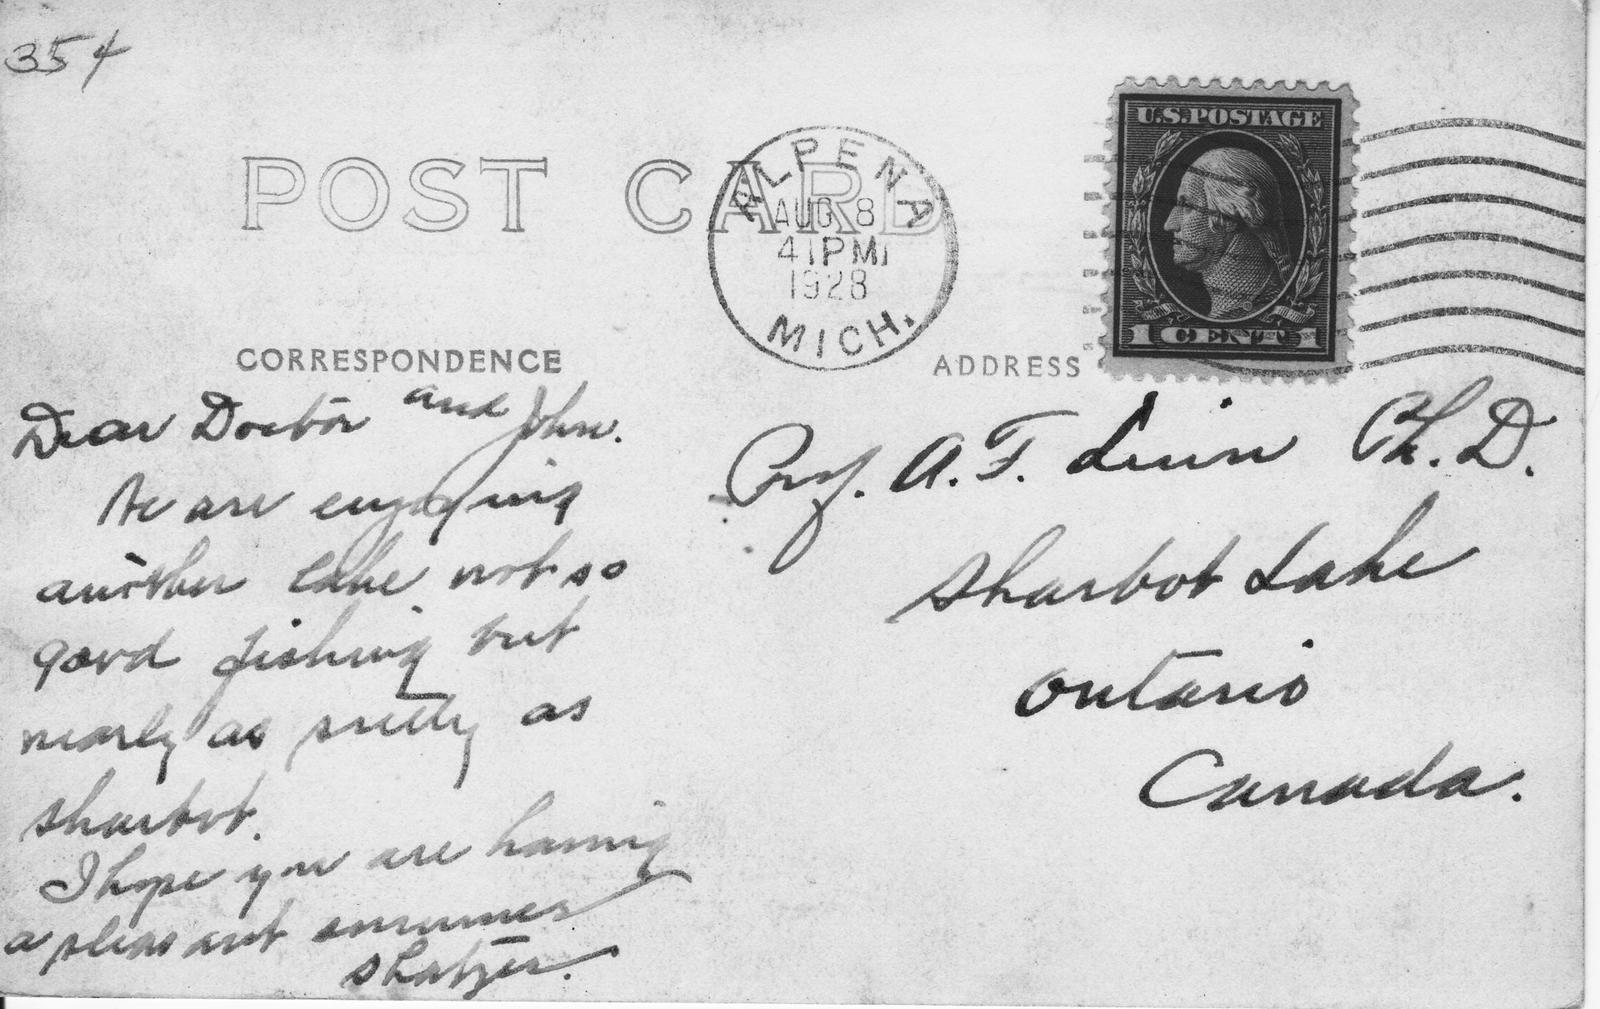 354
POST CARD
ALPENA
AUG 8
41PM
1928
MICH.
U.S. POSTAGE
1 CENT 1
CORRESPONDENCE
ADDRESS
Dear Doctor and John.
We are enjoying
another lake not so
good fishing but
nearly as pretty as
Sharbot.
I hope you are having
a pleasant summer
Shatzer.
Prof. A. F. Linn Ph. D.
Sharbot Lake
Ontario
Canada.